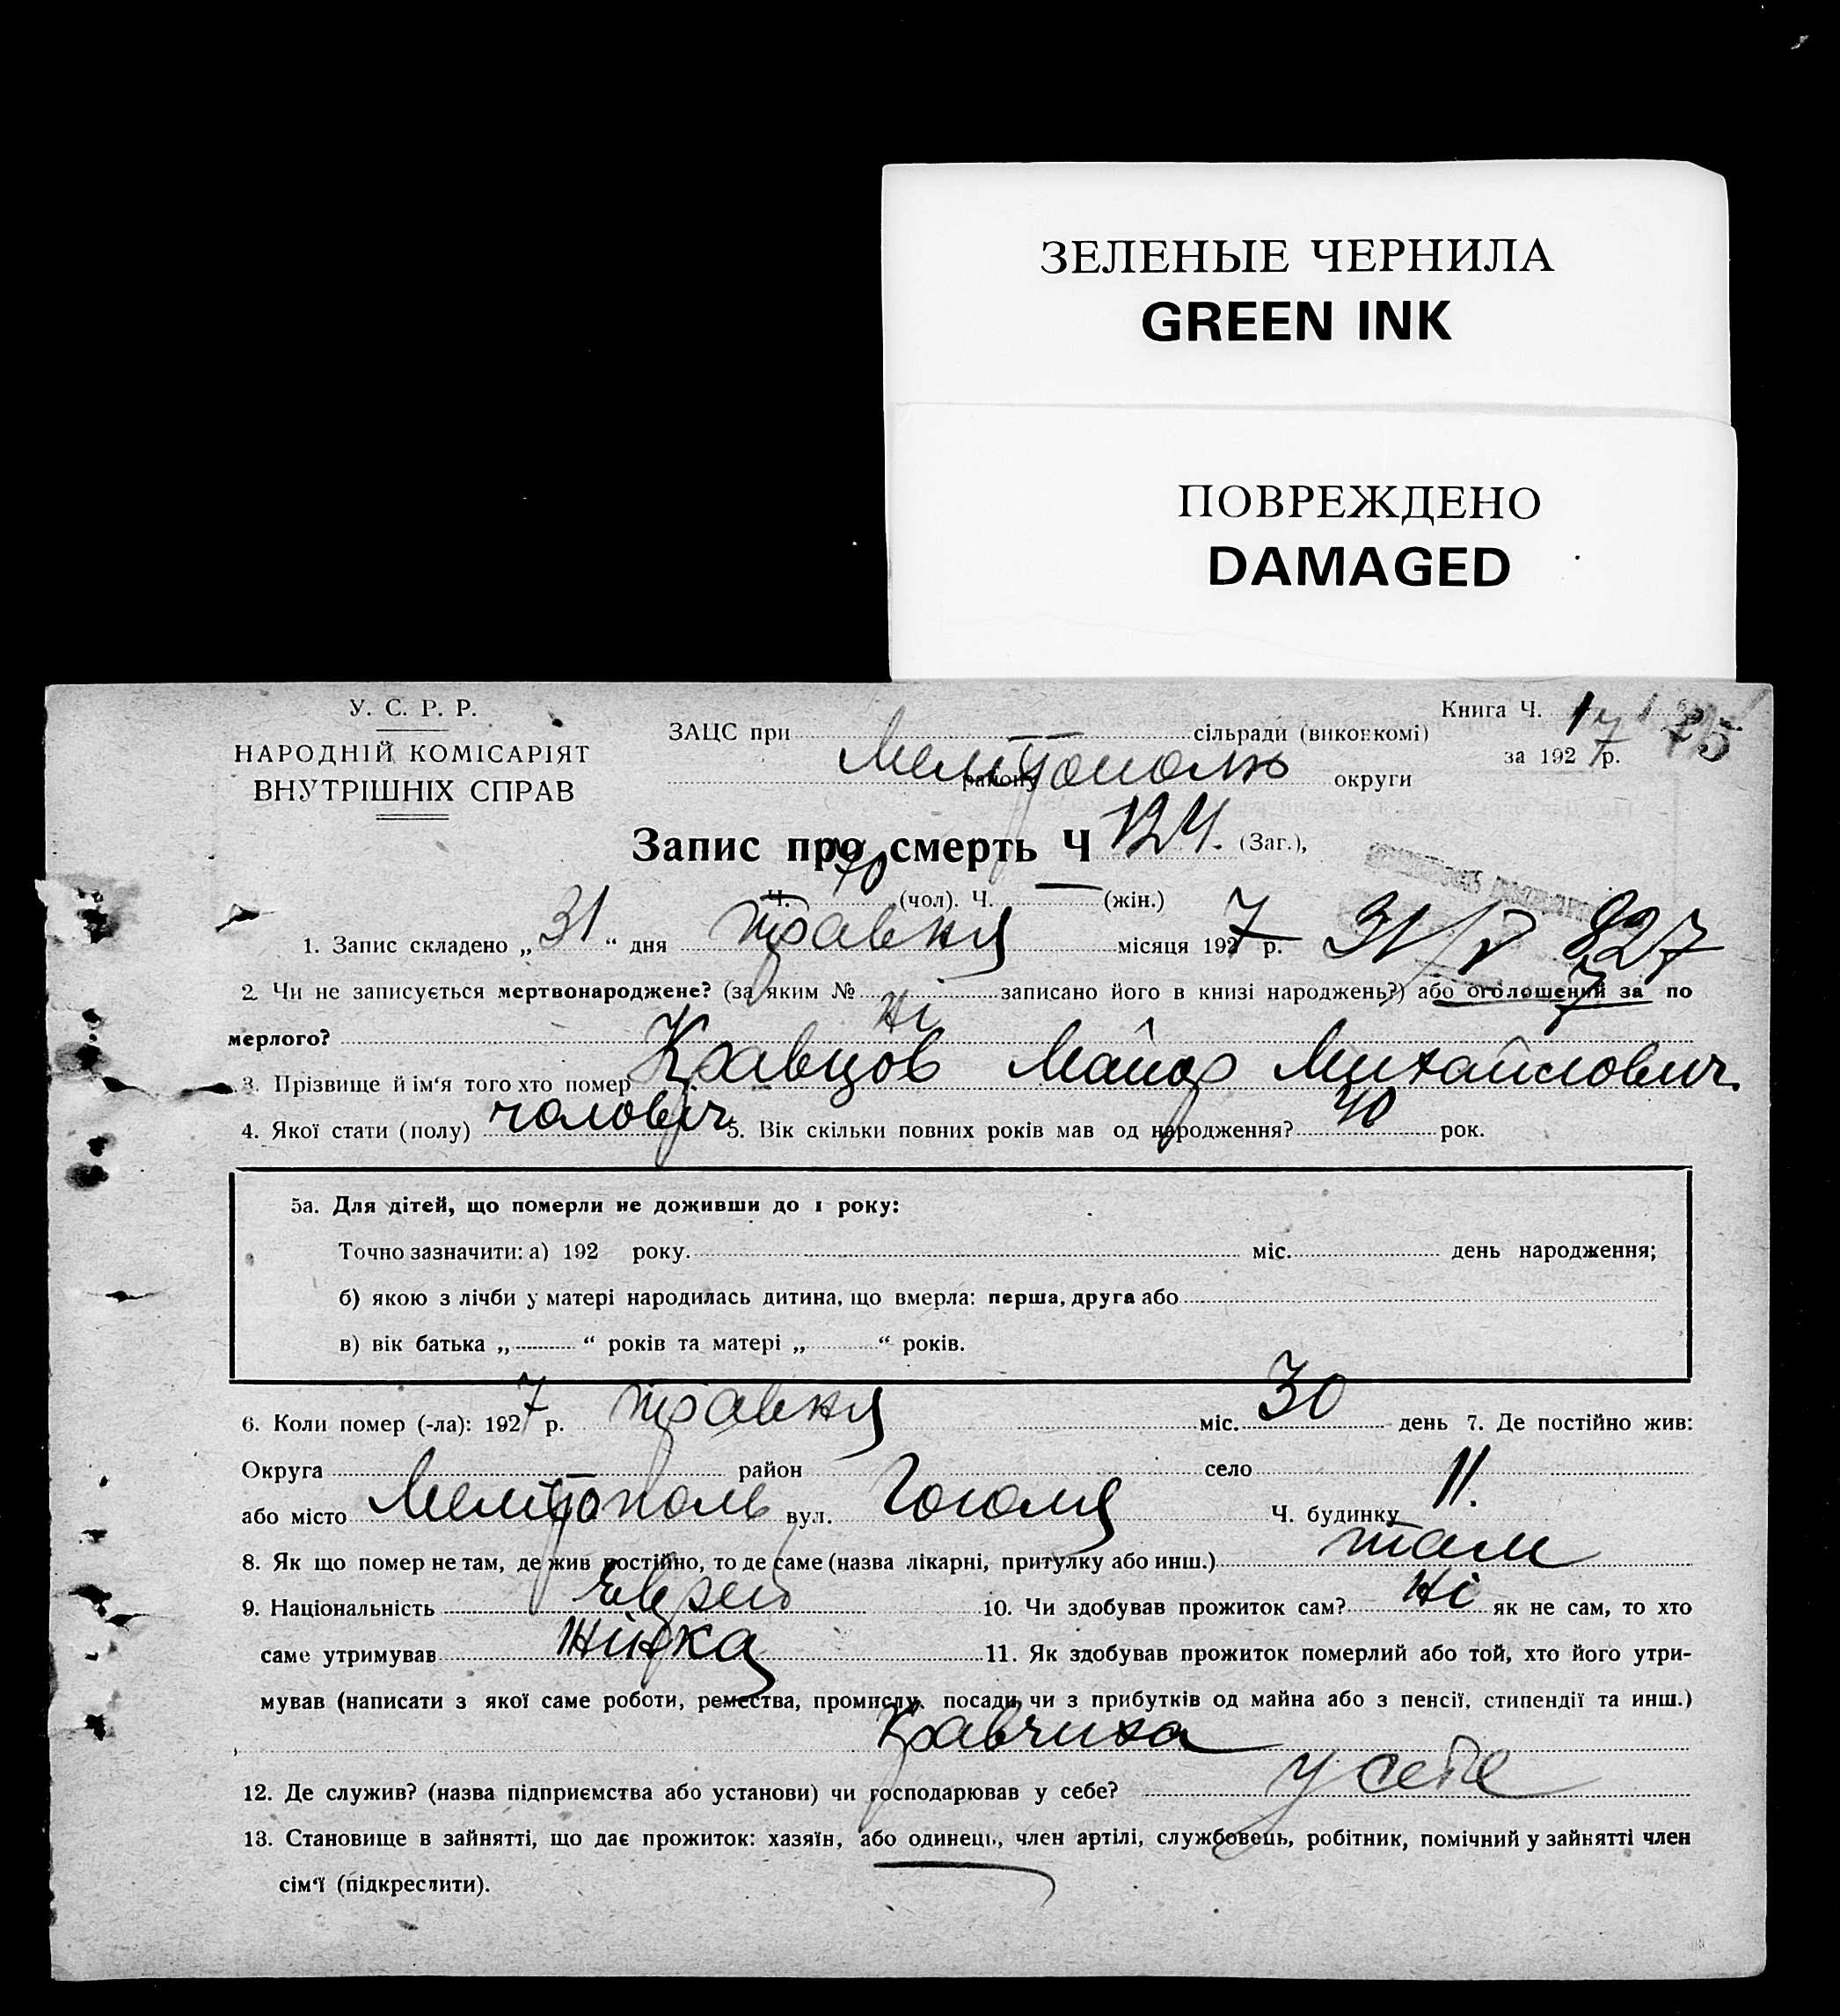 ЗЕЛЕНЫЕ ЧЕРНИЛА
GREEN INK
ПОВРЕЖДЕНО
DAMAGED
У. С. Р. Р.
НАРОДНІЙ КОМІСАРІЯТ
ВНУТРІШНІХ СПРАВ
Книга Ч. 1
за 1927 р.
ЗАЦС при сільради (виконкомі)
Мелітополь району округи
Запис про смерть Ч 124. (Заг.),
Ч. 70 (чол). Ч. — (жін.)
1. Запис складено „31“ дня травня місяця 1927 р. 31/V 827
2. Чи не записується мертвонароджене? (за яким № записано його в книзі народжень?) або оголошений за по
мерлого? Ні
3. Прізвище й ім‘я того хто помер Кравцов Майор Михайлович.
4. Якої стати (полу) чоловіч. 5. Вік скільки повних років мав од народження? 70 рок.
5а. Для дітей, що померли не доживши до 1 року:
Точно зазначити: а) 192 року. міс. день народження;
б) якою з лічби у матері народилась дитина, що вмерла: перша, друга або
в) вік батька „ “ років та матері „ “ років.
6. Коли помер (-ла): 1927 р. травня міс. 30 день 7. Де постійно жив:
Округа район село
або місто Мелітополь вул. Гоголя Ч. будинку 11.
8. Як що помер не там, де жив постійно, то де саме (назва лікарні, притулку або инш.) там
9. Національність Єврей 10. Чи здобував прожиток сам? Ні як не сам, то хто
саме утримував жінка 11. Як здобував прожиток померлий або той, хто його утри-
мував (написати з якої саме роботи, ремества, промислу, посади чи з прибутків од майна або з пенсії, стипендії та инш.)
Кравчиха
12. Де служив? (назва підприємства або установи) чи господарював у себе? у себе
13. Становище в зайнятті, що дає прожиток: хазяїн, або одинець, член артілі, службовець, робітник, помічний у зайнятті член
сім‘ї (підкреслити).